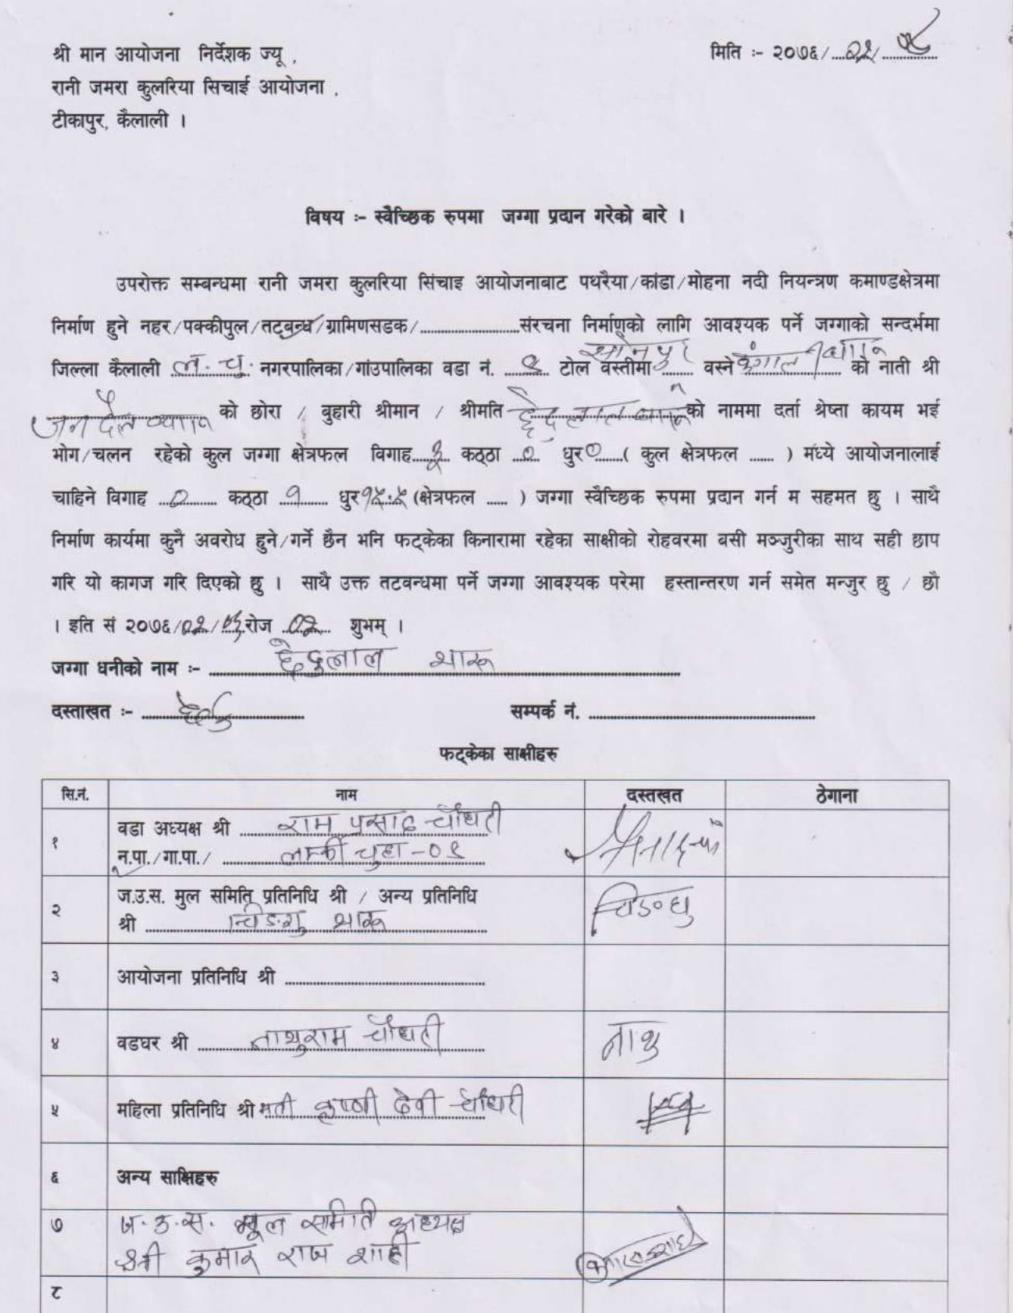 श्री मान आयोजना निर्देशक ज्यू ,
मिति :- २०७६/
रानी जमरा कुलरिया सिचाई आयोजना ,
टीकापुर, कैलाली ।
विषय :- स्वैच्छिक रुपमा जग्गा प्रदान गरेको बारे ।
उपरोक्त सम्बन्धमा रानी जमरा कुलरिया सिंचाइ आयोजनाबाट पथरैया/कांडा/मोहना नदी नियन्त्रण कमाण्डक्षेत्रमा
निर्माण हुने नहर/पक्कीपुल/तट्बन्ध/ग्रामिणसडक/......................संरचना निर्माणको लागि आवश्यक पर्ने जग्गाको सन्दर्भमा
जिल्ला कैलाली ल. चु. नगरपालिका/गांउपालिका वडा नं. टोल वस्तीमा वस्ने को नाती श्री
को छोरा / बुहारी श्रीमान / श्रीमति को नाममा दर्ता श्रेष्ता कायम भई
भोग/चलन रहेको कुल जग्गा क्षेत्रफल विगाह कठ्ठा ० धुर ० ( कुल क्षेत्रफल ...... ) मध्ये आयोजनालाई
चाहिने विगाह ० कठ्ठा १ धुर १५.५ (क्षेत्रफल ..... ) जग्गा स्वैच्छिक रुपमा प्रदान गर्न म सहमत छु । साथै
निर्माण कार्यमा कुनै अवरोध हुने/गर्ने छैन भनि फट्केका किनारामा रहेका साक्षीको रोहवरमा बसी मञ्जुरीका साथ सही छाप
गरि यो कागज गरि दिएको छु । साथै उक्त तटवन्धमा पर्ने जग्गा आवश्यक परेमा हस्तान्तरण गर्न समेत मन्जुर छु / छौ
। इति सं २०७६/ रोज शुभम् ।
जग्गा धनीको नाम :- छेदुलाल थारू
दस्ताखत :- सम्पर्क नं. ..............................
फट्केका साक्षीहरु
सि.नं. नाम दस्तखत ठेगाना
१ वडा अध्यक्ष श्री राम प्रसाद चौधरी
न.पा./गा.पा./ लम्की चुहा-०९
२ ज.उ.स. मुल समिति प्रतिनिधि श्री / अन्य प्रतिनिधि
श्री थारू
३ आयोजना प्रतिनिधि श्री ..............................
४ वडघर श्री नाथुराम चौधरी नाथु
५ महिला प्रतिनिधि श्री मती कृष्णी देवी चौधरी
६ अन्य साक्षिहरु
७ ज.उ.स. मूल समिति अध्यक्ष
श्री कुमार राज शाही
८